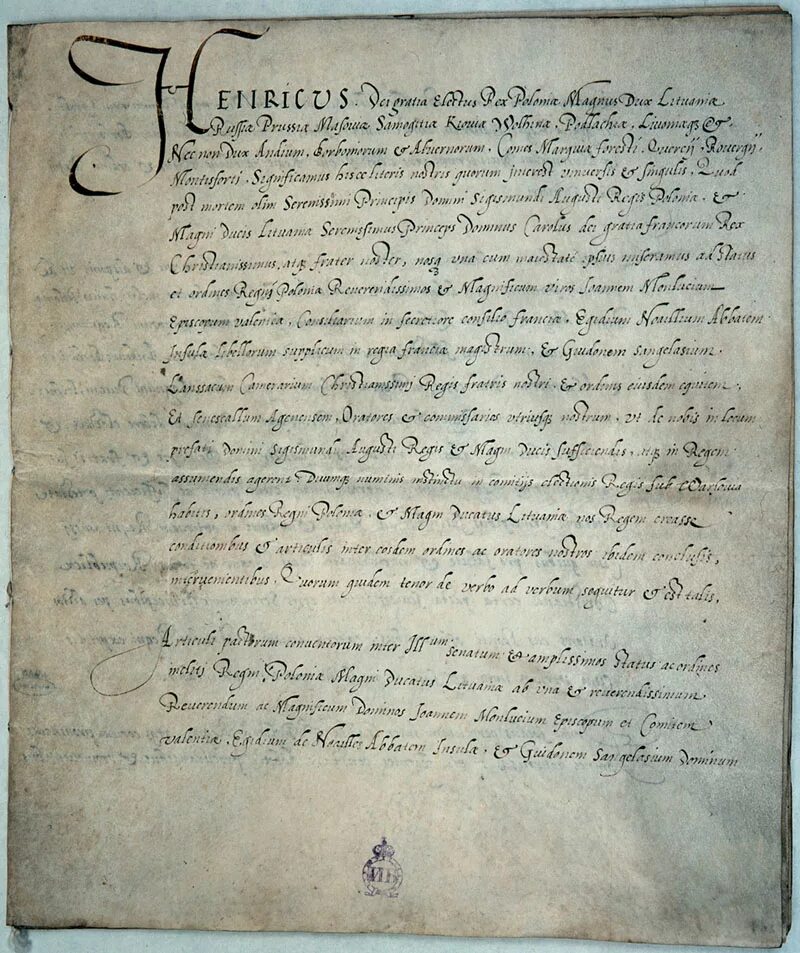 HENRICVS. Dei gratia Electus Rex Poloniæ Magnus Dux Lituaniæ
Russiæ Prussiæ Masouiæ Samogitiæ Kiouiæ Wolhinæ, Podlachiæ, Liuoniæq3 &.
Nec non Dux Andium, Borboniorum & Aluernorum, Comes Marquiæ foresti, Quercij, Rouergij,
Montisforti, Significamus hisce literis nostris quorum interest vniuersis & singulis, Quod
post mortem olim Serenissimi Principis Domini Sigismundi Augusti Regis Poloniæ, &
Magni Ducis Lituaniæ Serenissimus Princeps Dominus Carolus dei gratia francorum Rex
Christianissimus, atq3 frater noster, nosq3 vna cum maiestate ipsius miseramus ad status
et ordines Regni Poloniæ Reuerendissimos & Magnificum viros Ioannem Monlucium
Episcopum valentiæ, Consiliarium in secretiore consilio franciæ, Egidium Noallium Abbatem
Insulæ libellorum supplicum in regia franciæ magistrum, & Guidonem Sangelasium
Lanssacum Camerarium Christianissimi Regis fratris nostri, & ordinis eiusdem equitem,
Et Senescallum Agenensem, Oratores & commissarios vtriusq3 nostrum, vt de nobis in locum
prefati Domini Sigismundi Augusti Regis & Magni Ducis sufficiendis, atq3 in Regem
assumendis agerent Diuinoq3 numinis instinctu in comitijs electionis Regis sub Warsouia
habitis, ordines Regni Poloniæ, & Magni Ducatus Lituaniæ nos Regem creasse
conditionibus & articulis inter eosdem ordines ac oratores nostros ibidem conclusis,
interuenientibus, Quorum quidem tenor de verbo ad verbum sequitur & est talis,
Articuli pactorum conuentorum inter Illum senatum & amplissimos status ac ordines
incliti Regni, Poloniæ Magni Ducatus Lituaniæ ab vna & reuerendissimum
Reuerendum ac Magnificum Dominos Ioannem Monlucium Episcopum et Comitem
valentiæ, Egidium de Noailles Abbatem Insulæ, & Guidonem Sangelasium Dominum